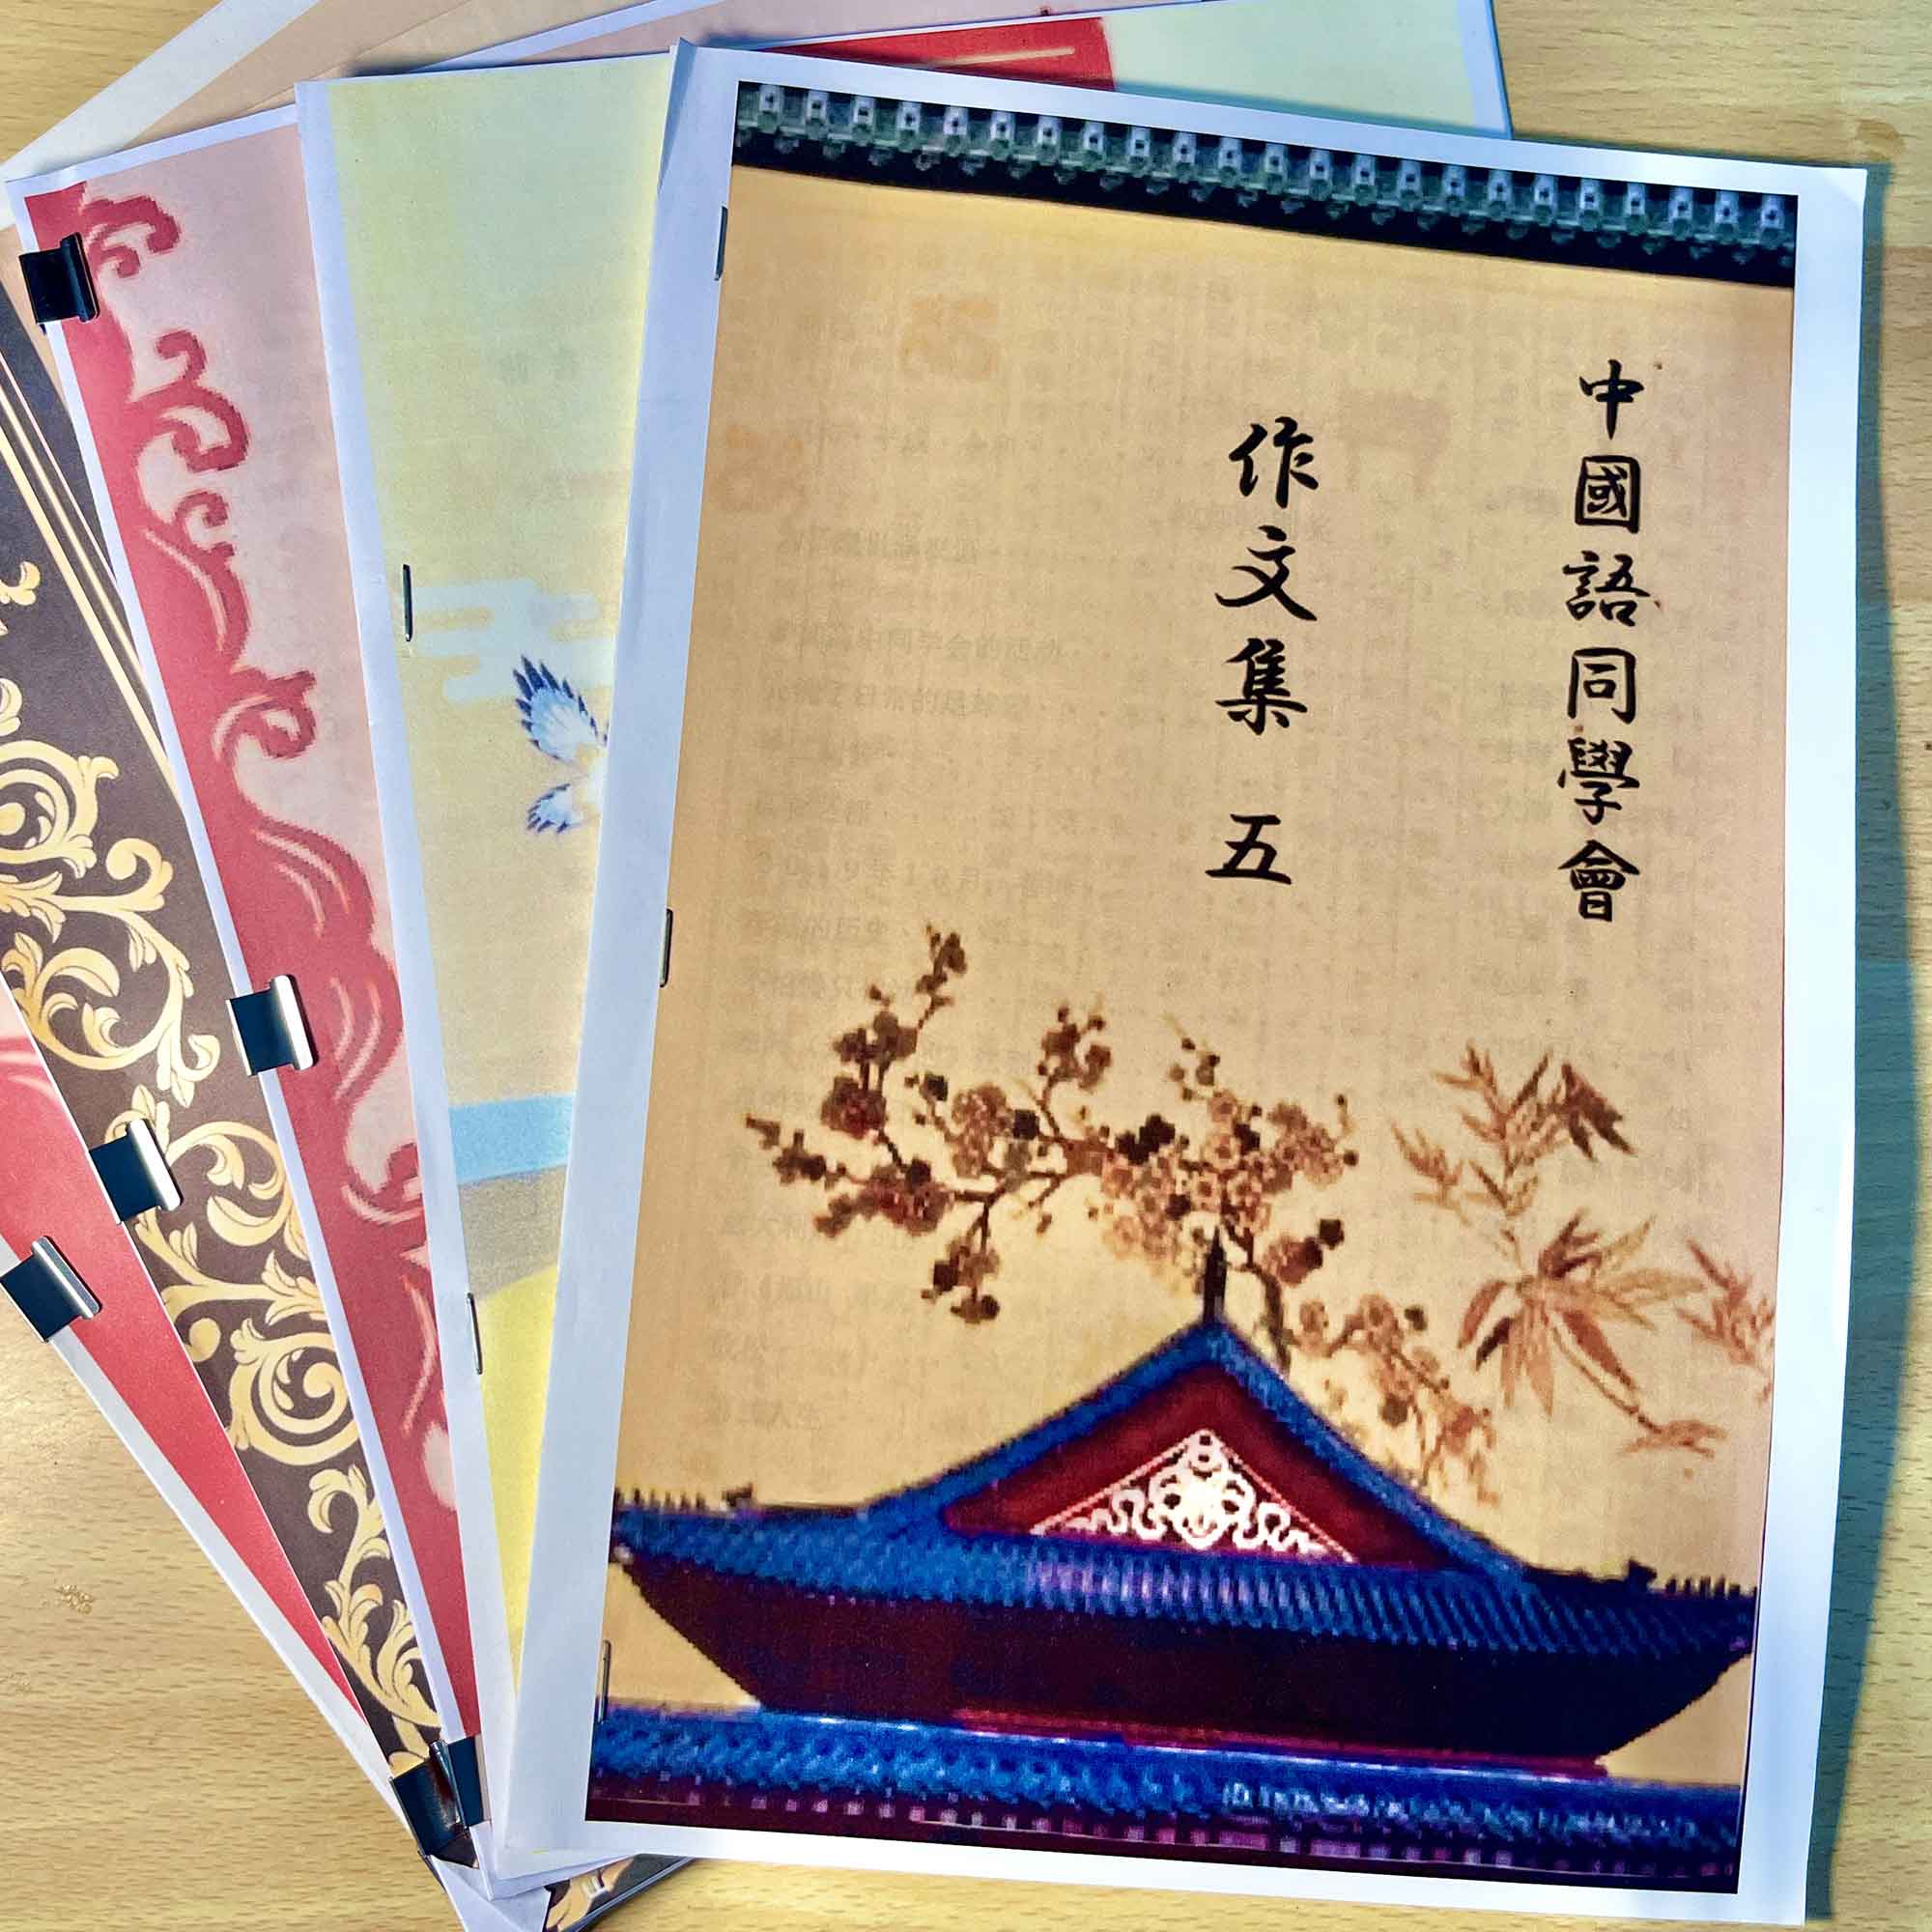 中國語同學會
作文集 五